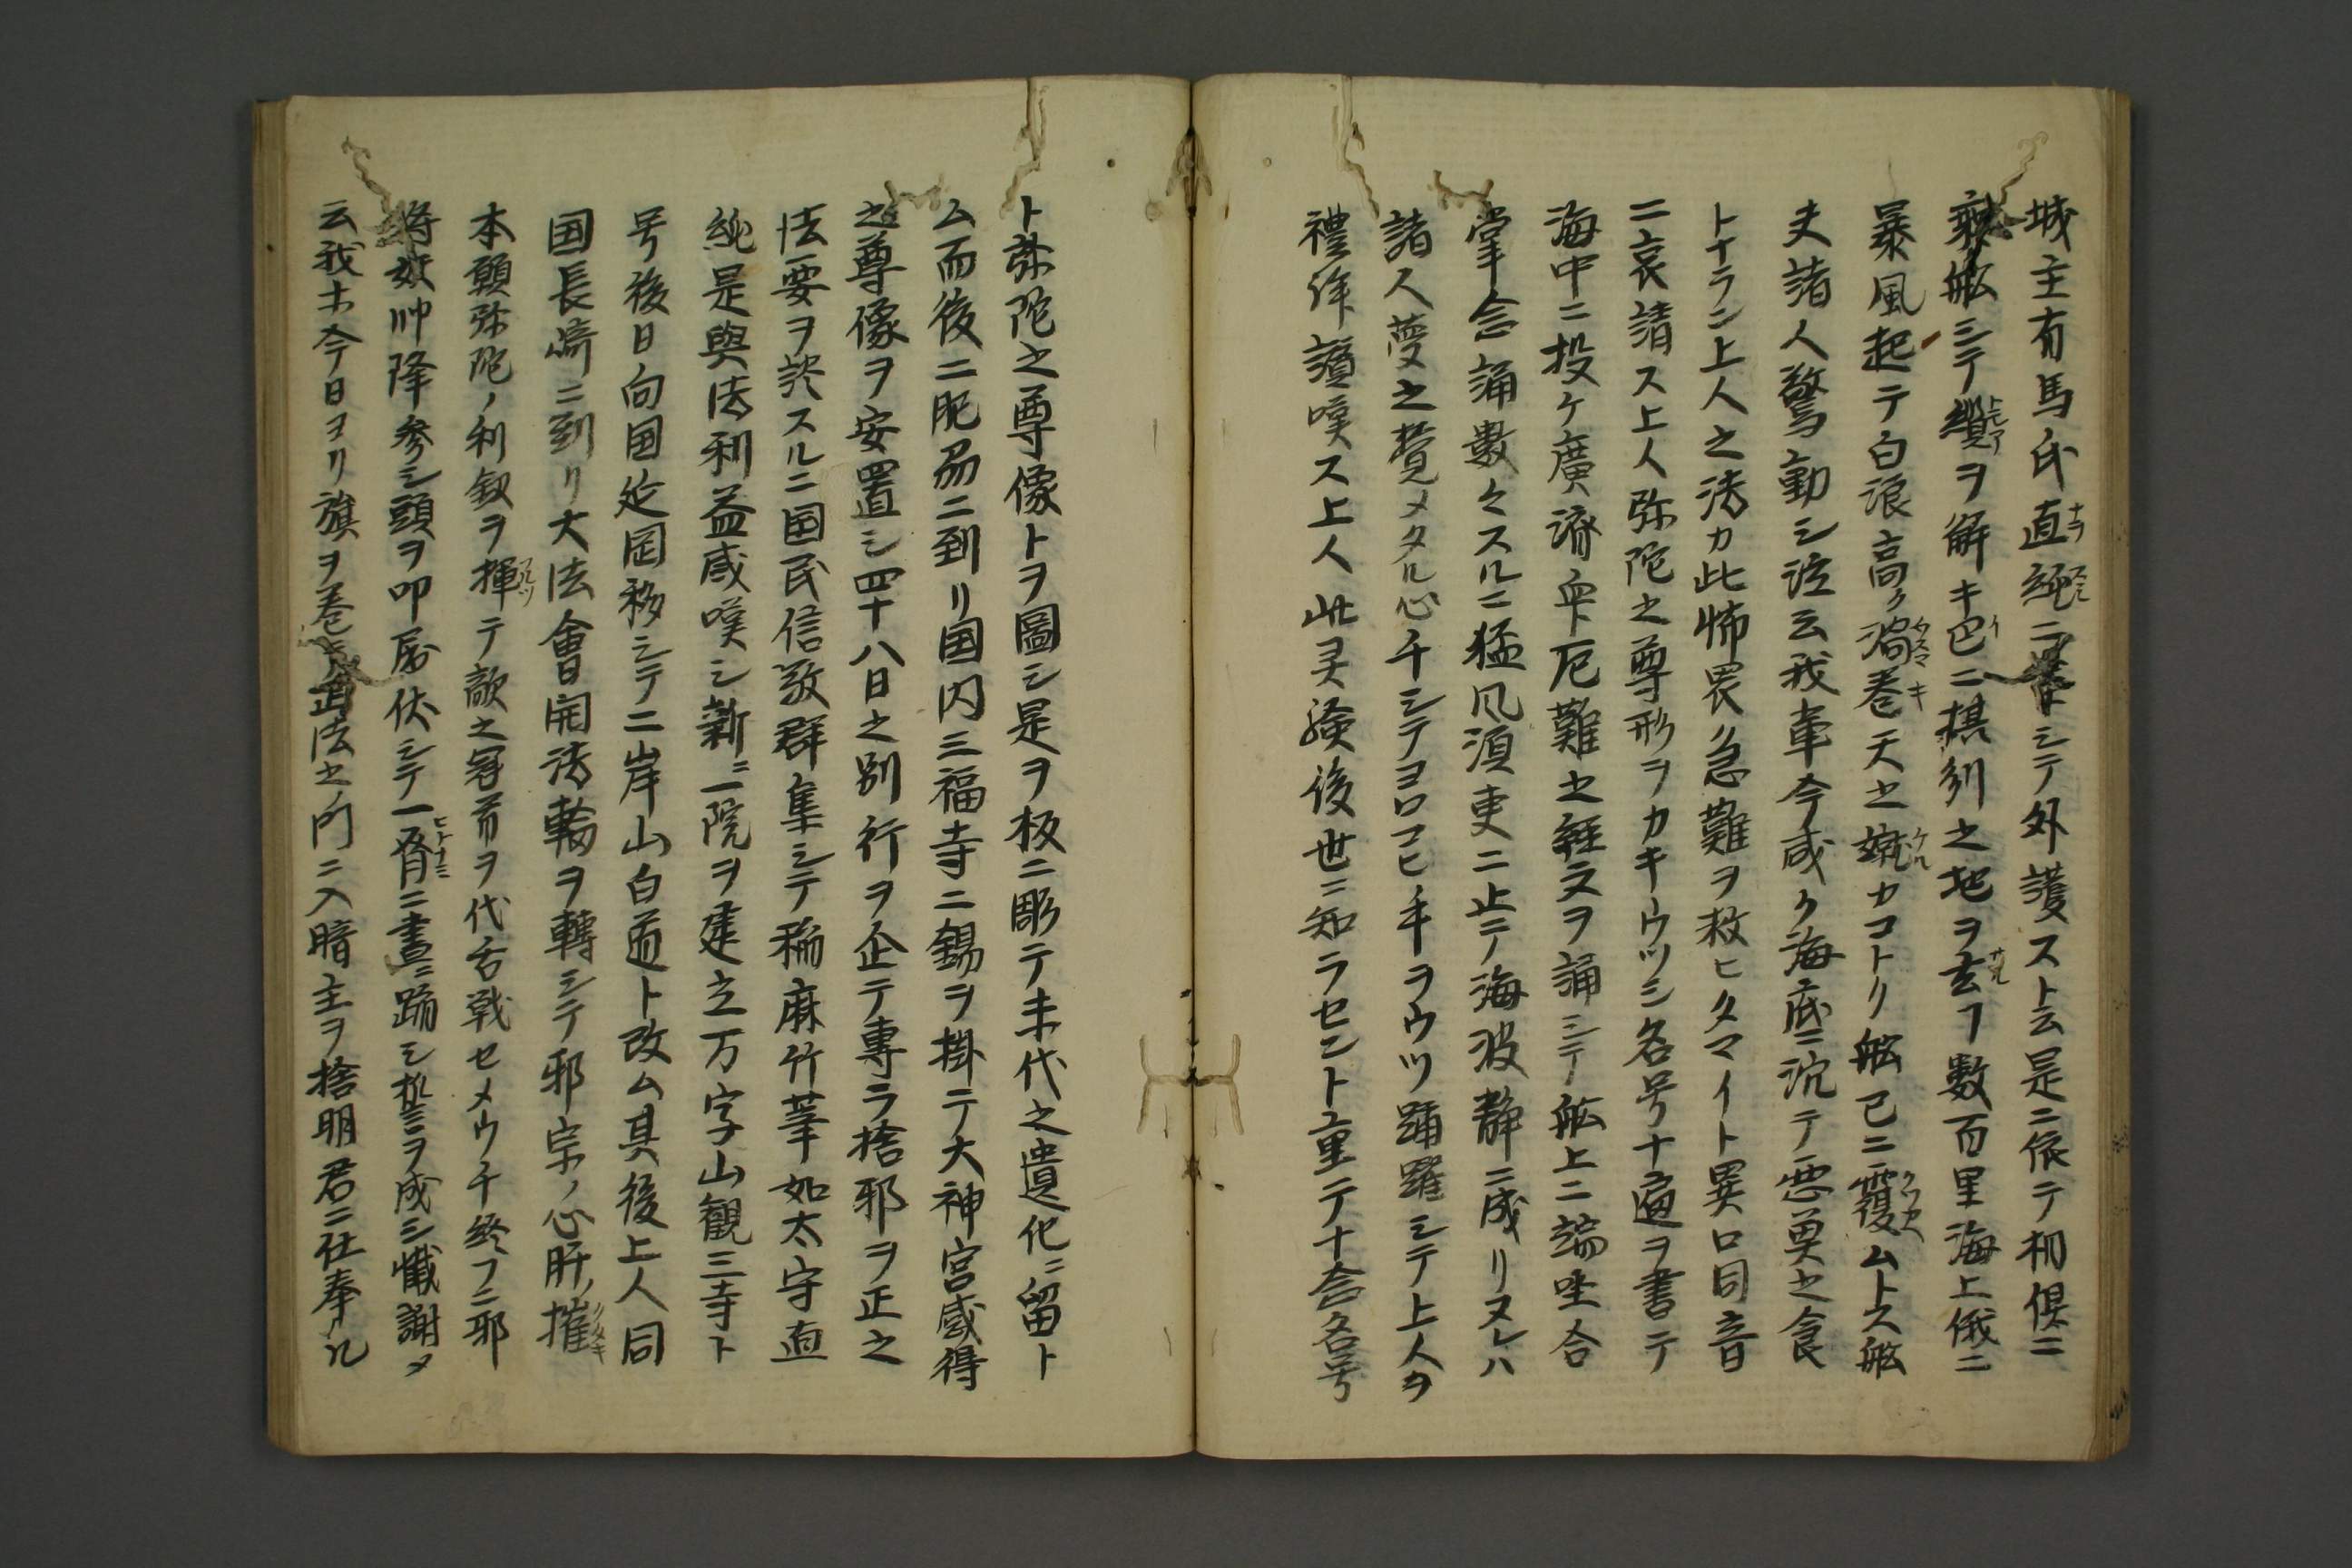 城主有馬氏直純ニ命シテ外護スト云是ニ依テ相倶ニ
乗舩シテ纜ヲ解キ已ニ棋列之地ヲ去フ数百里海上俄ニ
暴風起テ白浪高ク渦巻天之墜カコトク舩已ニ覆ムトス舩
夫諸人驚動シ泣云我輩今咸ク海底ニ沉テ悪魚之食
トナラン上人之法力此怖畏急難ヲ救ヒタマイト異口同音
ニ哀請ス上人弥陀之尊形ヲカキウツシ名号十遍ヲ書テ
海中ニ投ケ廣濟衆厄難之経文ヲ誦シテ舩上ニ端坐合
掌念誦數々スルニ猛風須更ニ止テ海波静ニ成リヌレハ
諸人夢之覺メタル心チシテヨロコヒ手ヲウツ踊躍シテ上人ヲ
禮拜讃嘆ス上人此灵驗後世ニ知ラセント重テ十念名号
ト弥陀之尊像トヲ圖シ是ヲ板ニ彫テ末代之遺化ニ留ト
ム而後ニ肥州ニ到リ国内三福寺ニ錫ヲ掛テ大神宮感得
之尊像ヲ安置シ四十八日之別行ヲ企テ專ラ捨邪ヲ正之
法要ヲ談スルニ国民信敬群集シテ稲麻竹葦如太守直
純是與法利益感嘆シ新ニ一院ヲ建立万字山観三寺ト
号後日向国延岡移シテ二岸山白道ト改ム其後上人同
国長﨑ニ到リ大法會開法輪ヲ轉シテ邪宗ノ心肝ノ摧
本願弥陀ノ利劔ヲ揮テ敵之冠首ヲ代舌戦セメウチ終フニ邪
将奴帥降参シ頭ヲ叩居伏シテ一脊ニ晝ニ踊シ誓ヲ成シ懺謝メ
云我ホ今日ヨリ旗ヲ巻テ正法之門ニ入暗主ヲ捨明君ニ仕奉ル